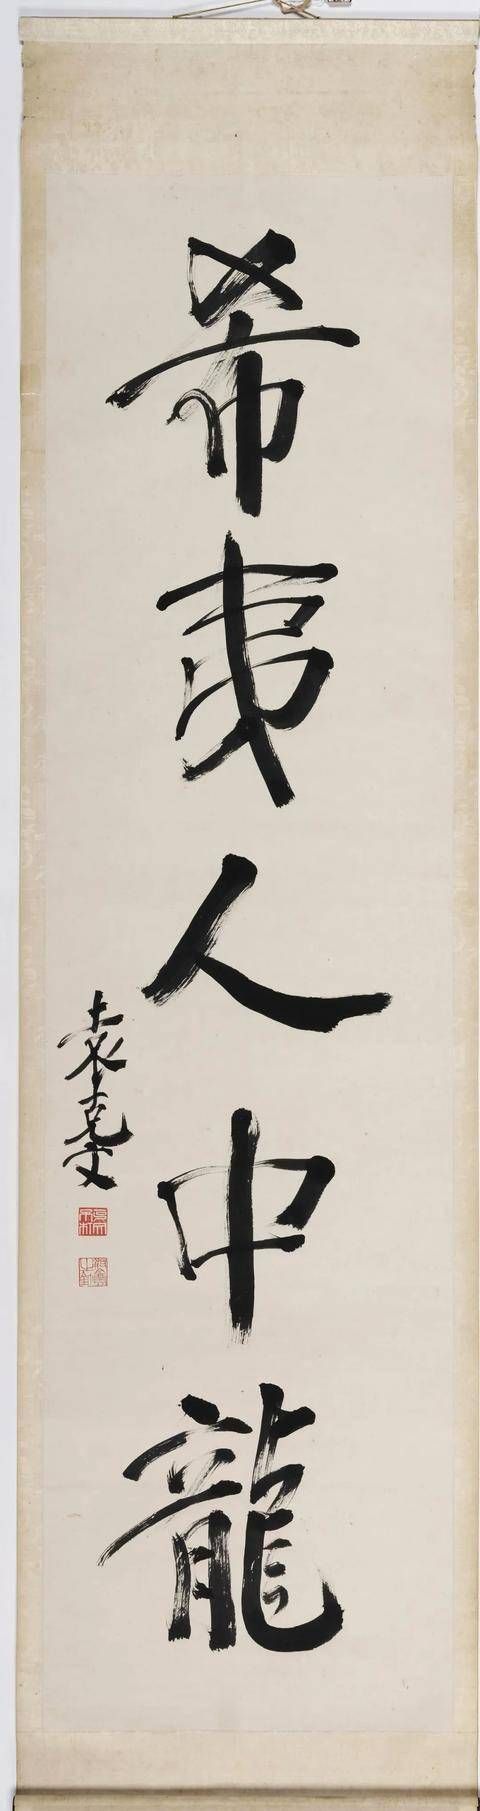 希夷人中龍
袁克文